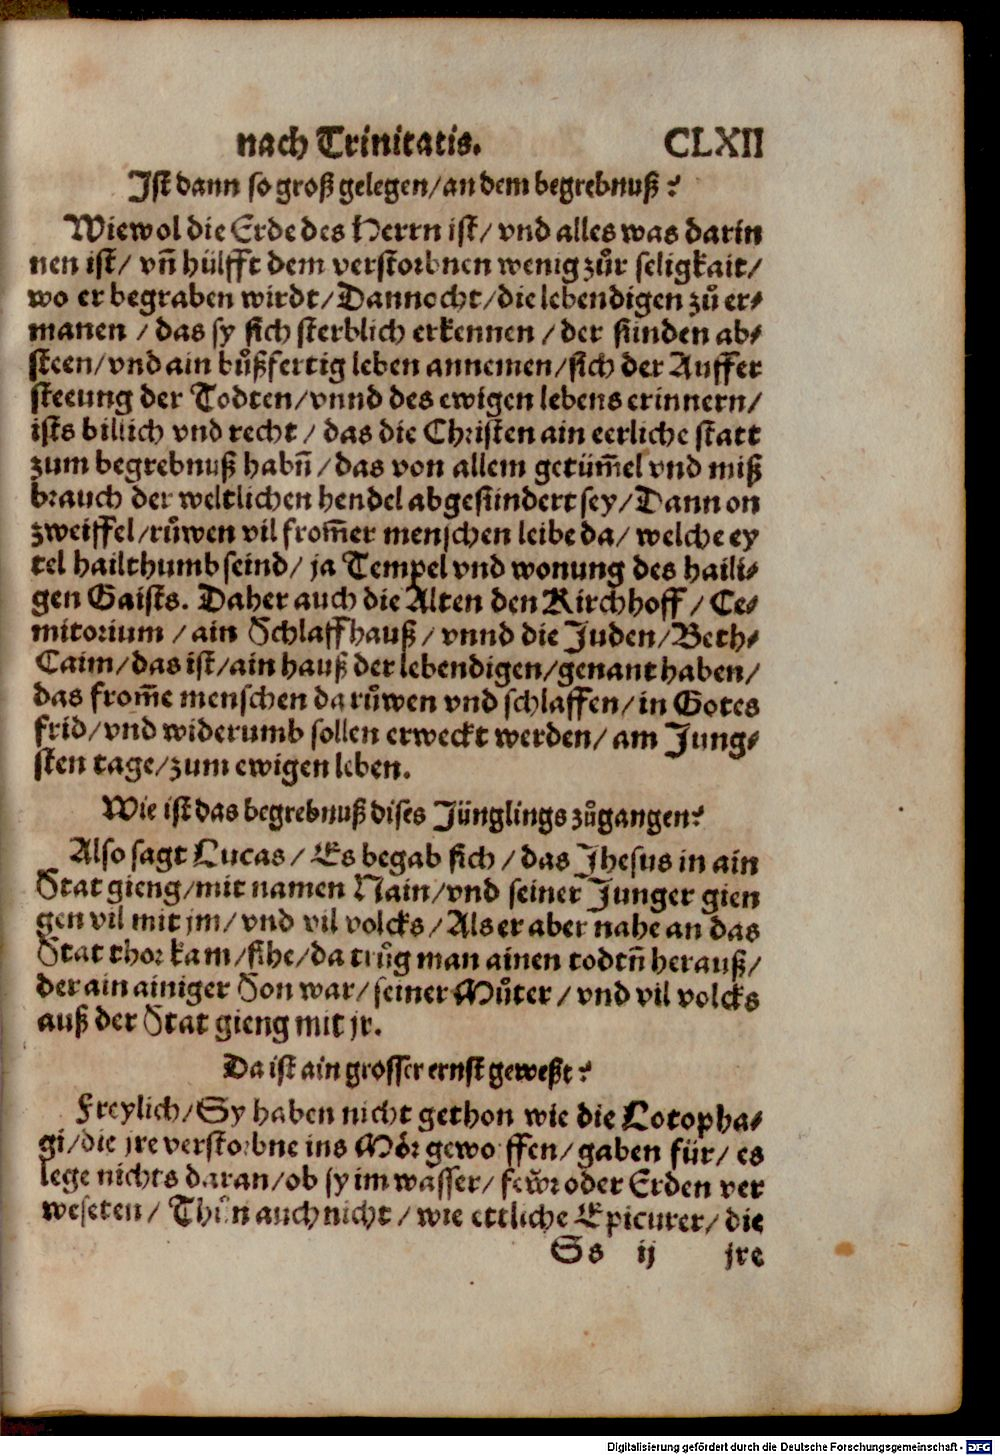 nach Trinitatis. CLXII
Jst dann so groß gelegen/an dem begrebnuß?
Wiewol die Erde des Herrn ist/ vnd alles was darin
nen ist/ vñ hülfft dem verstorbnen wenig zůr seligkait/
wo er begraben wirdt/Dannocht/die lebendigen zů er⸗
manen /das sy sich sterblich erkennen /der sünden ab⸗
steen/vnd ain bůßfertig leben annemen/sich der Auffer
steeung der Todten/vnnd des ewigen lebens erinnern/
ists billich vnd recht / das die Christen ain eerliche statt
zum begrebnuß habñ/das von allem getüm̃el vnd miß
brauch der weltlichen hendel abgesündert sey/Dann on
zweiffel/růwen vil from̃er menschen leibe da/ welche ey
tel hailthumb seind/ ja Tempel vnd wonung des haili⸗
gen Gaists. Daher auch die Alten den Kirchhoff / Ce⸗
mitorium /ain Schlaffhauß/vnnd die Juden/Beth⸗
Caim/das ist/ain hauß der lebendigen/genant haben/
das from̃e menschen da růwen vnd schlaffen/in Gotes
frid/vnd widerumb sollen erweckt werden/am Jung⸗
sten tage/zum ewigen leben.
Wie ist das begrebnuß dises Jünglings zůgangen?
Also sagt Lucas/ Es begab sich /das Jhesus in ain
Stat gieng/mit namen Nain/vnd seiner Junger gien
gen vil mit jm/vnd vil volcks/Als er aber nahe an das
Stat thor kam/sihe/da trůg man ainen todtñ herauß/
der ain ainiger Son war/seiner Můter/vnd vil volcks
auß der Stat gieng mit jr.
Da ist ain grosser ernst geweßt?
Freylich/Sy haben nicht gethon wie die Lotopha⸗
gi/die jre verstorbne ins Mör gewoffen/gaben für/ es
lege nichts daran/ob sy im wasser/fewr oder Erden ver
weseten/ Thůn auch nicht /wie ettliche Epicurer/die
Ss ij jre
Digitalisierung gefördert durch die Deutsche Forschungsgemeinschaft - DFG